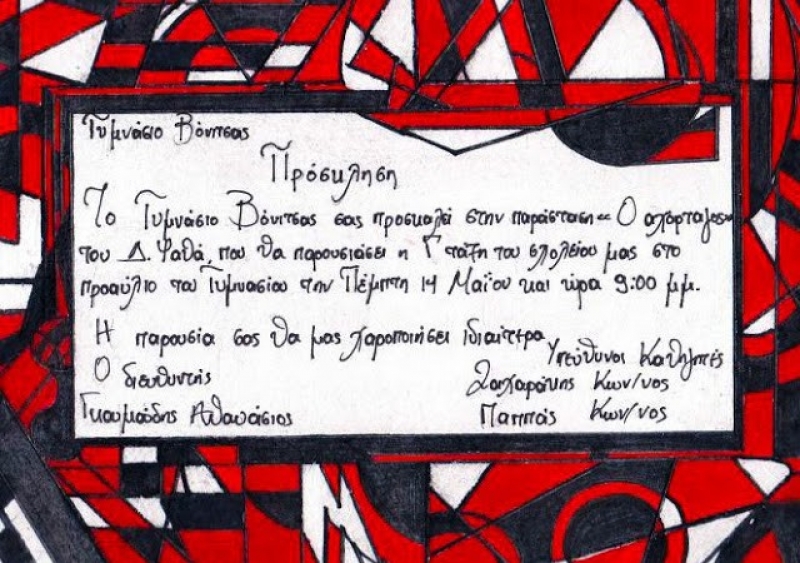 Γυμνάσιο Βόνιτσας
Πρόσκληση
Το Γυμνάσιο Βόνιτσας σας προσκαλεί στην παράσταση « Ο αχόρταγος»
του Δ. Ψαθά, που θα παρουσιάσει η Γ τάξη του σχολείου μας στο
προαύλιο του Γυμνασίου την Πέμπτη 14 Μαΐου και ώρα 9:00 μμ.
Η παρουσία σας θα μας χαροποιήσει ιδιαίτερα
Υπεύθυνοι Καθηγητές
Ο διευθυντής
Ζαχαράκης Κων/νος
Γκουμούδης Αθανάσιος
Παππάς Κων/νος